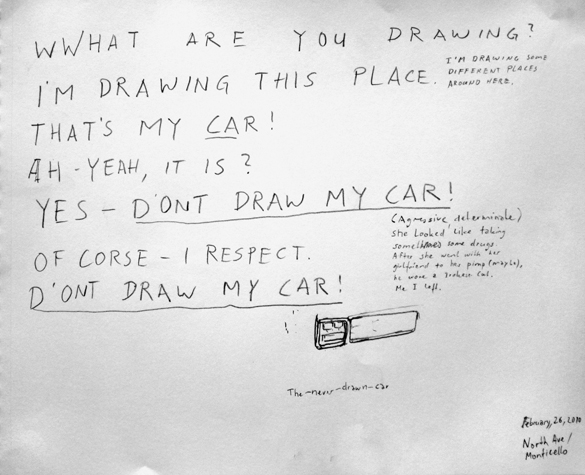 WWHAT ARE YOU DRAWING?
I'M DRAWING THIS PLACE.
I'M DRAWING SOME
DIFFERENT PLACES
AROUND HERE.
THAT'S MY CAR!
AH-YEAH, IT IS?
YES - D'ONT DRAW MY CAR!
(Agressive, determinate)
she looked like taking
some some drugs.
After she went with her
girlfriend to her pimp (maybe),
he wore a
Me I left.
OF CORSE - I RESPECT.
D'ONT DRAW MY CAR!
The-never-drawn-car
February, 26, 2010
North Ave/
Monticello